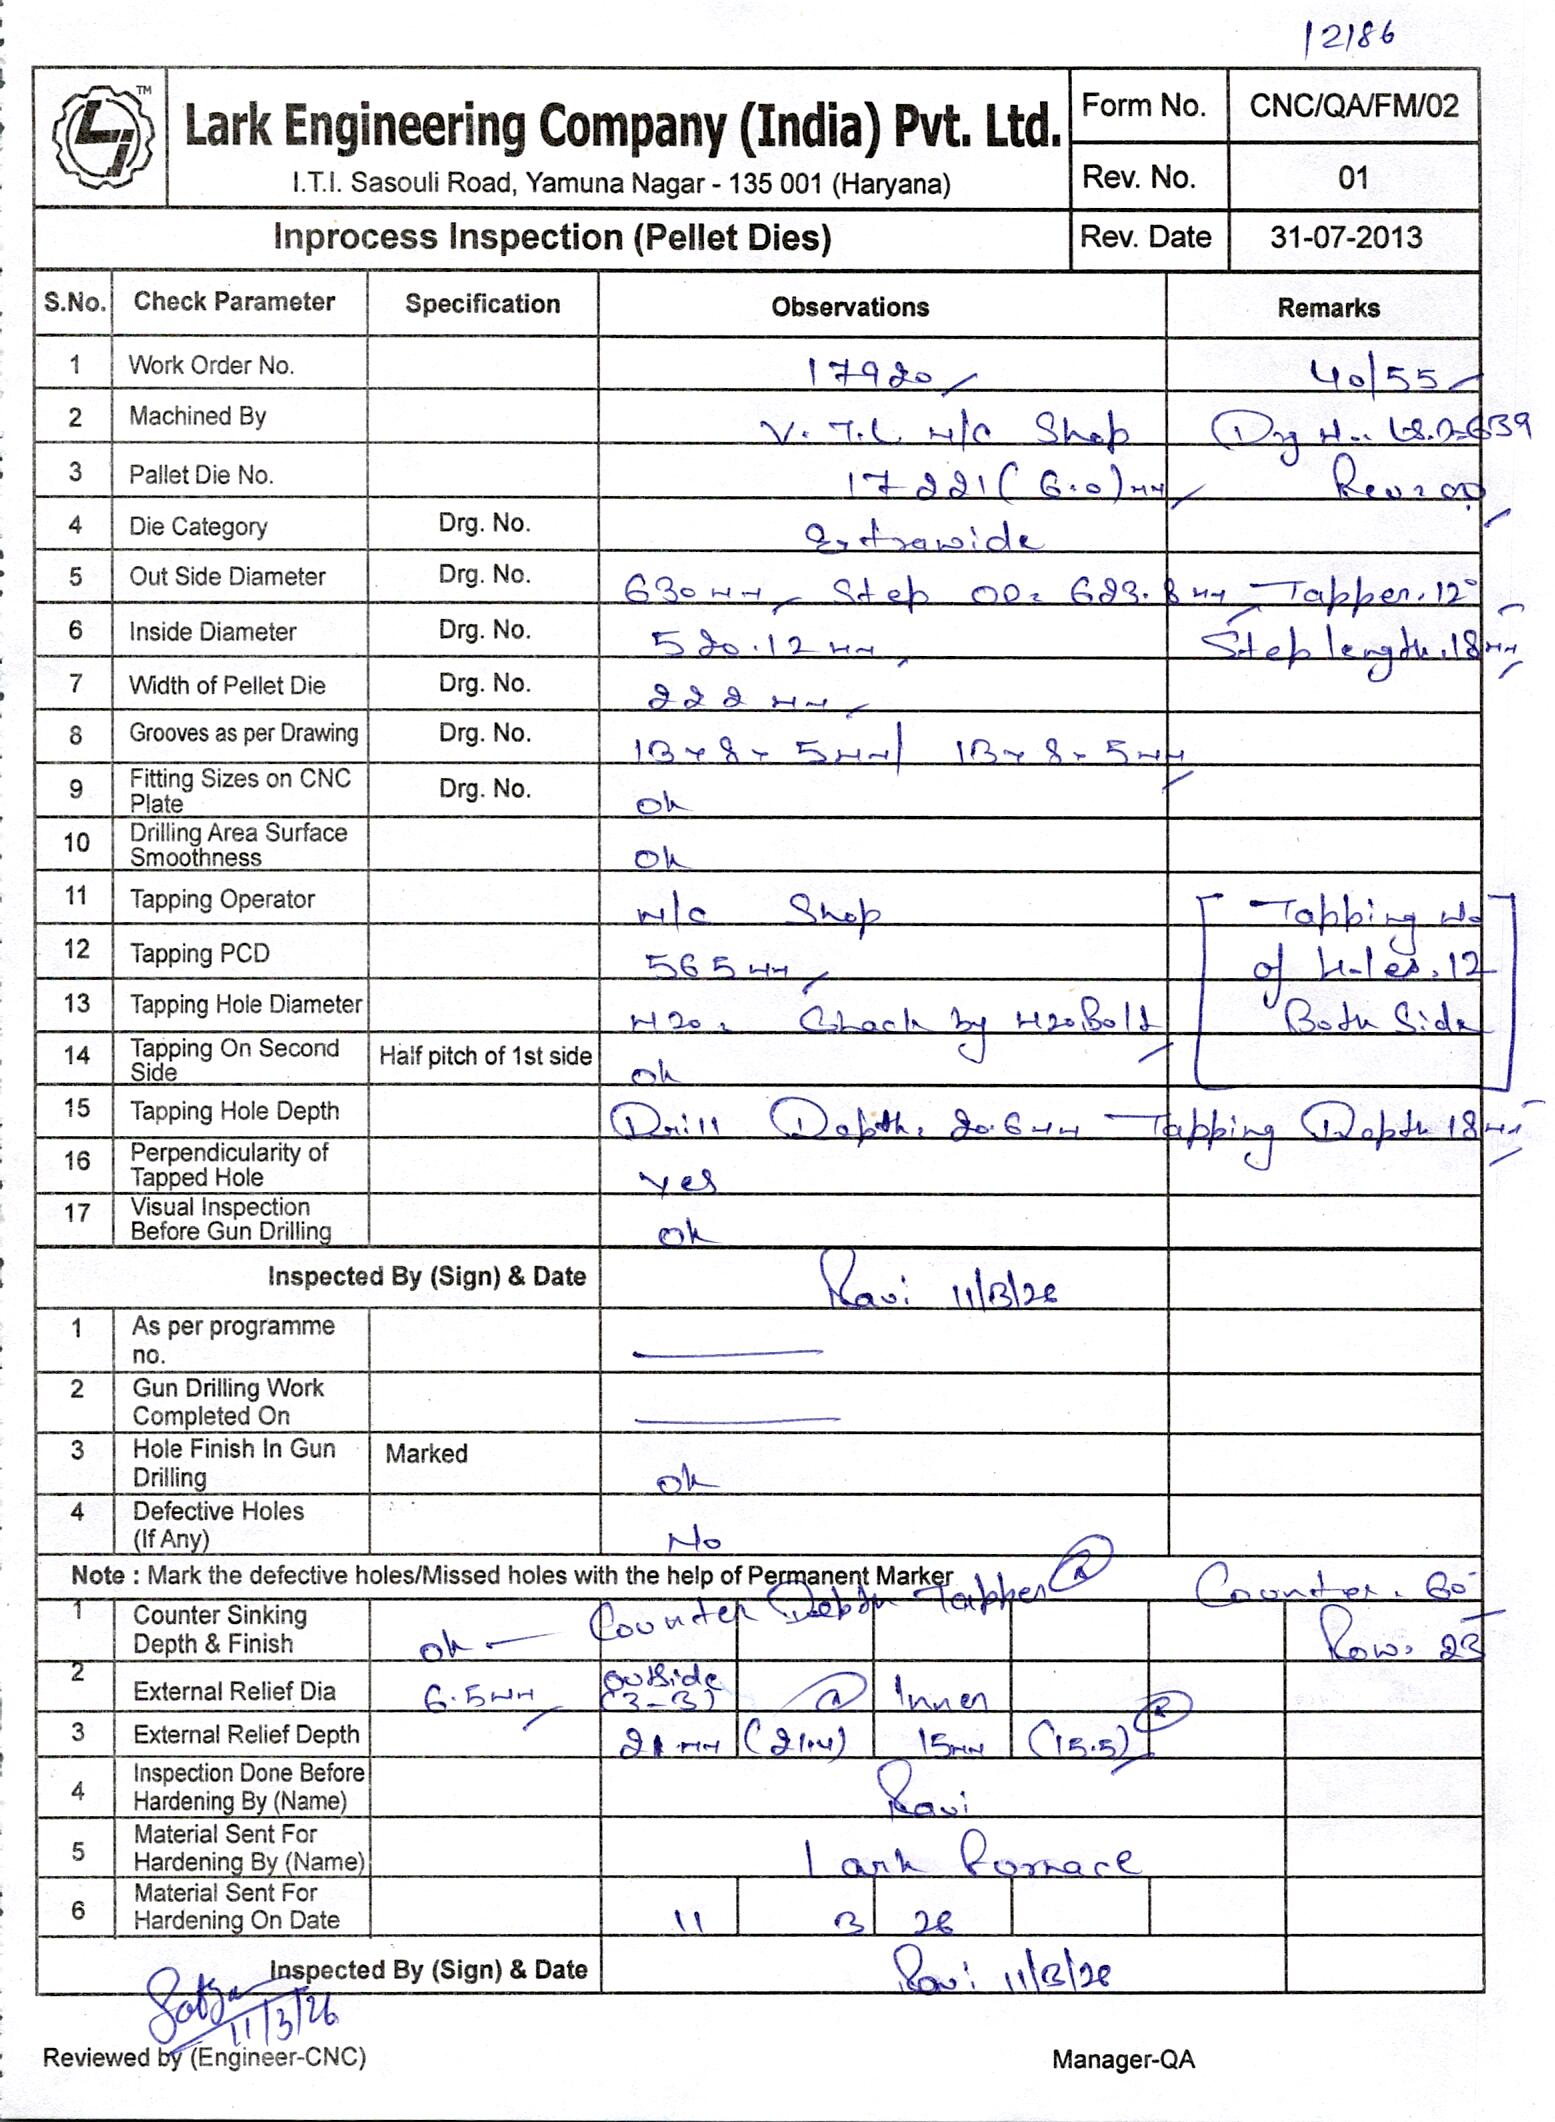 12186
TM
Lark Engineering Company (India) Pvt. Ltd.
I.T.I. Sasouli Road, Yamuna Nagar - 135 001 (Haryana)
Form No. CNC/QA/FM/02
Rev. No. 01
Inprocess Inspection (Pellet Dies) Rev. Date 31-07-2013
S.No. Check Parameter Specification Observations Remarks
1 Work Order No. 17920 40/55
2 Machined By V.T.L M/C Shop Drg No.
3 Pallet Die No. 17221 (6.0) mm Rev:
4 Die Category Drg. No. Extrawide
5 Out Side Diameter Drg. No. 630mm Step OD: 623.8mm Tapper. 12°
6 Inside Diameter Drg. No. 520.12 mm Step length. 18mm
7 Width of Pellet Die Drg. No. 222 mm
8 Grooves as per Drawing Drg. No. 13 x 8 x 5mm / 13 x 8 x 5mm
9 Fitting Sizes on CNC Plate Drg. No. ok
10 Drilling Area Surface Smoothness ok
11 Tapping Operator M/C Shop Tapping No
12 Tapping PCD 565mm of Holes. 12
13 Tapping Hole Diameter M20. Chack by M20 Bolt Both Side
14 Tapping On Second Side Half pitch of 1st side ok
15 Tapping Hole Depth Drill Depth. 20.6mm Tapping Depth 18mm
16 Perpendicularity of Tapped Hole Yes
17 Visual Inspection Before Gun Drilling ok
Inspected By (Sign) & Date Ravi 11/3/26
1 As per programme no.
2 Gun Drilling Work Completed On
3 Hole Finish In Gun Drilling Marked ok
4 Defective Holes (If Any) No
Note : Mark the defective holes/Missed holes with the help of Permanent Marker
Counter Depth Tapper Counter. 60°
1 Counter Sinking Depth & Finish ok Row. 23
2 External Relief Dia 6.5mm outside (3-3) Inner
3 External Relief Depth 21 mm (21.4) 15mm (15.5)
4 Inspection Done Before Hardening By (Name) Ravi
5 Material Sent For Hardening By (Name) Lark Furnace
6 Material Sent For Hardening On Date 11 3 26
Inspected By (Sign) & Date Ravi 11/3/26
11/3/26
Reviewed by (Engineer-CNC) Manager-QA